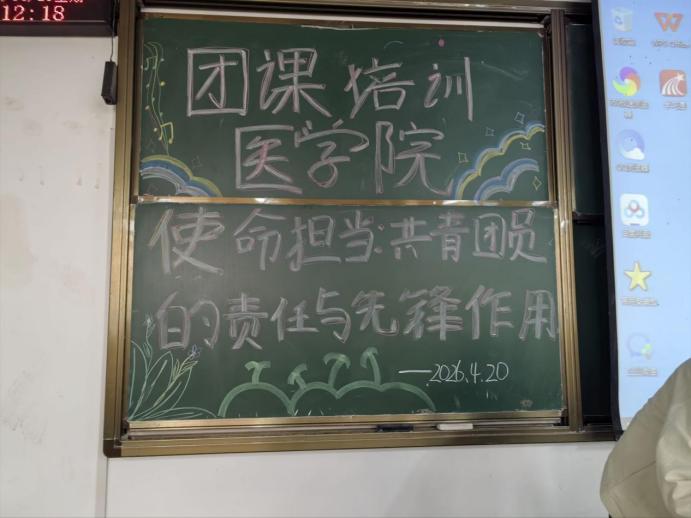 12:18
团课培训
医学院
使命担当:共青团员
的责任与先锋作用
—2026.4.20